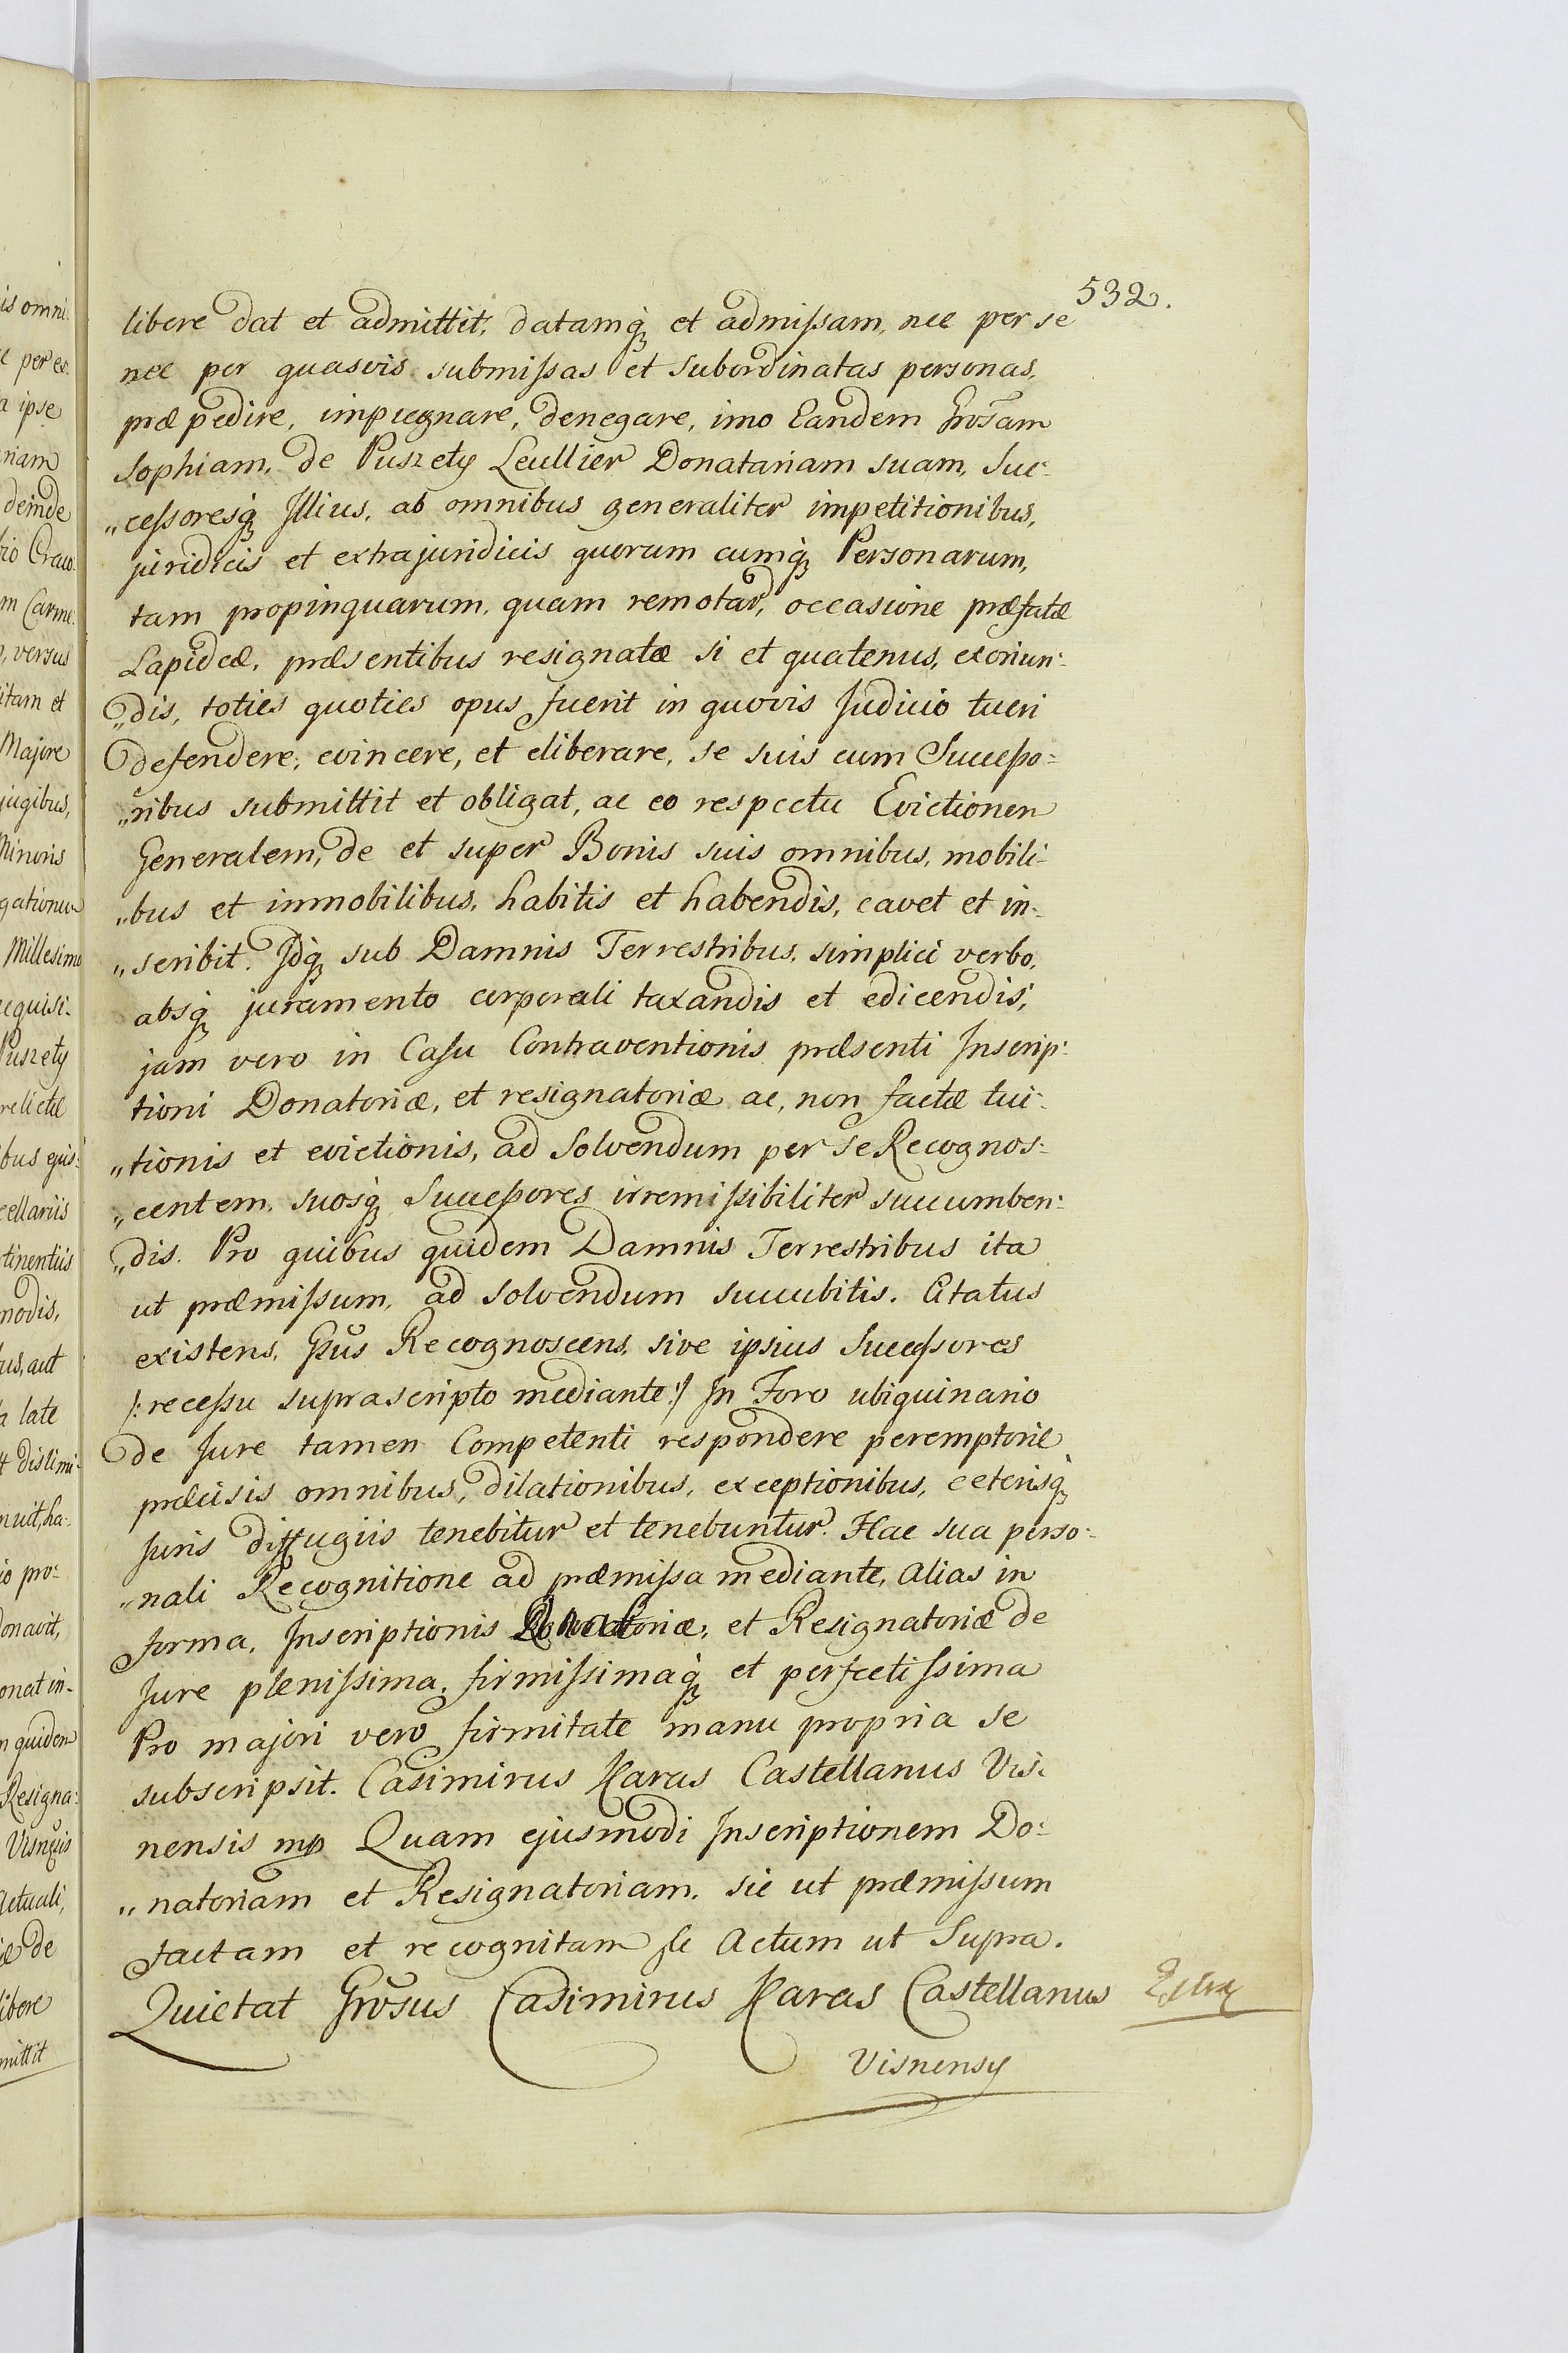 532.
libere dat et admittit, datamq₃ et admiſsam, nec per se
nec per quasvis submiſsas et subordinatas personas,
præpedire, impugnare, denegare, imo Eandem Grōsam
Sophiam, de Puszety Leullier Donatariam suam, Suc-
„ceſsoresq₃ Illius, ab omnibus generaliter impetitionibus,
juridicis et extrajuridicis quorum cumq₃ Personarum,
tam propinquarum, quam remotar, occasione præfatæ
Lapideæ, præsentibus resignatæ si et quatenus, exoriun-
„dis, toties quoties opus fuerit in quovis Judicio tueri
defendere, evincere, et eliberare, se suis cum Succeſso-
„ribus submittit et obligat, ac eo respectu Evictionem
Generalem, de et super Bonis suis omnibus, mobili-
„bus et immobilibus, habitis et habendis, cavet et in-
„scribit. Idq₃ sub Damnis Terrestribus, simplici verbo,
absq₃ juramento corporali taxandis et edicendis,
jam vero in Casu Contraventionis præsenti Inscrip-
tioni Donatoriæ, et resignatoriæ ac, non factæ tui-
„tionis et evictionis, ad Solvendum per se Recognos-
„centem, suosq₃ Succeſsores irremiſsibiliter succumben-
„dis. Pro quibus quidem Damnis Terrestribus ita
ut præmiſsum, ad solvendum succubitis. Citatus
existens, Gsus Recognoscens, sive ipsius Succeſsores
/: receſsu suprascripto mediante :/ In Foro ubiquinario
de Jure tamen Competenti respondere peremptorie
præcisis omnibus, dilationibus, exceptionibus, ceterisq₃
Juris diffugiis tenebitur et tenebuntur. Hac sua perso-
„nali Recognitione ad præmiſsa mediante, alias in
forma, Inscriptionis Donatoriæ, et Resignatoriæ de
Jure pleniſsima, firmiſsimaq₃ et perfectiſsima
Pro majori vero firmitate manu propria se
subscripsit. Casimirus Karas Castellanus Vis-
nensis mp Quam ejusmodi Inscriptionem Do-
„natoriam et Resignatoriam, sic ut præmiſsum
factam et recognitam se Actum ut Supra.
Quietat Grōsus Casimirus Karas Castellanus
Visnensy
is omni-
a ipse
deinde
, versus
itam et
Majore
jugibus,
Minoris
Millesimo
Puszety
relictæ
cellariis
tinentiis
modis,
us, aut
a late
io pro-
onavit,
onat in-
n quidem
Resigna-
Actuali,
æ de
libere
mittit